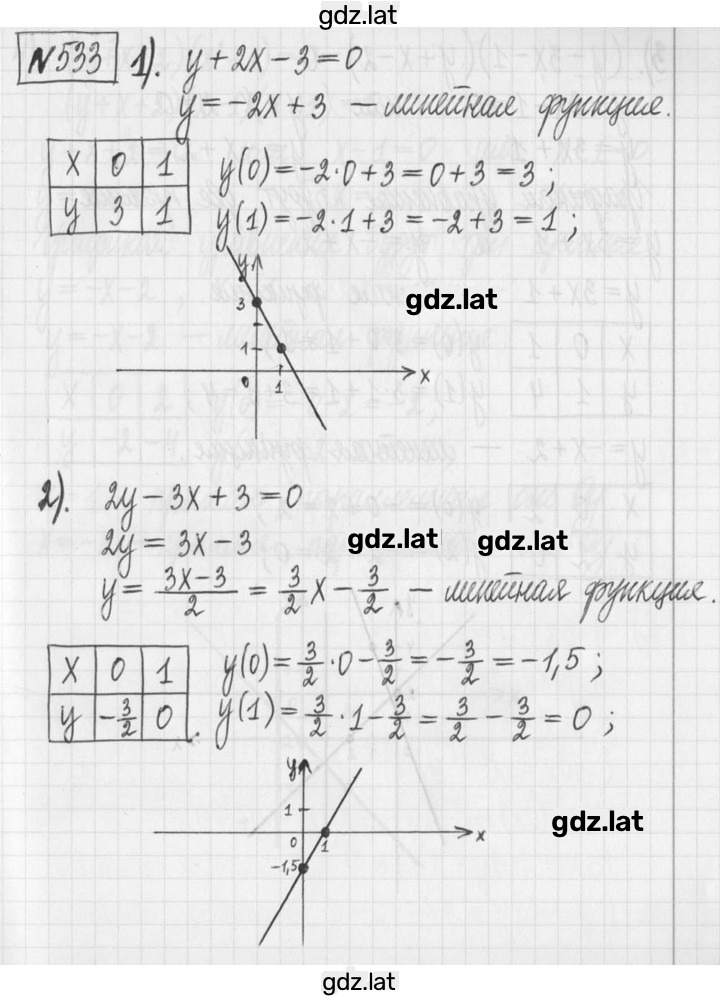 gdz.lat
№533 1). y + 2x - 3 = 0
y = -2x + 3 — линейная функция.
x 0 1
y 3 1
y(0) = -2·0 + 3 = 0 + 3 = 3 ;
y(1) = -2·1 + 3 = -2 + 3 = 1 ;
y
3
1
0
1
x
gdz.lat
2). 2y - 3x + 3 = 0
2y = 3x - 3
gdz.lat gdz.lat
y = (3x-3)/2 = 3/2 x - 3/2 — линейная функция.
x 0 1
y -3/2 0
y(0) = 3/2 · 0 - 3/2 = -3/2 = -1,5 ;
y(1) = 3/2 · 1 - 3/2 = 3/2 - 3/2 = 0 ;
y
1
0
1
x
-1,5
gdz.lat
gdz.lat